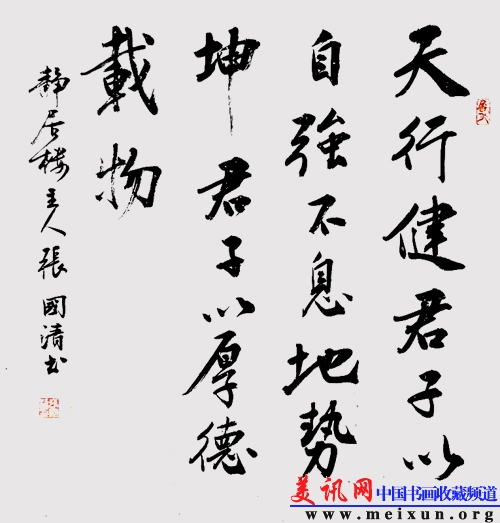 天行健君子以
自強不息地勢
坤君子以厚德
載物
靜居樓主人張國清书
美讯网 中国书画收藏频道
www.meixun.org